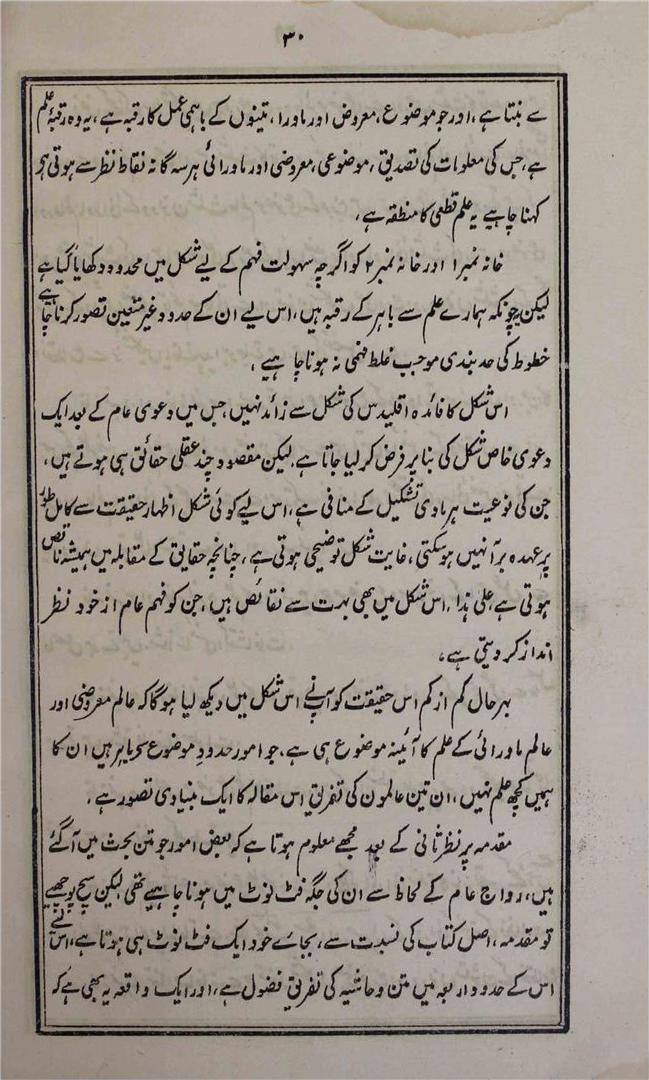 ۳۰
سے بنتا ہے، اور جو موضوع، معروض اور ماورا، تینوں کے باہمی عمل کا رقبہ ہے، یہ وہ رقبۂ علم
ہے، جس کی معلومات کی تصدیق، موضوعی، معروضی اور ماورائی ہر سہ گانہ نقاط نظر سے ہوتی ہو
کہنا چاہیے یہ علم قطعی کا منطقہ ہے،
خانہ نمبر ۱ اور خانہ نمبر ۲ کو اگرچہ سہولت فہم کے لیے شکل میں محدود دکھایا گیا ہے
لیکن چونکہ ہمارے علم سے باہر کے رقبہ ہیں، اس لیے ان کے حدود غیر متعین تصور کرنا چاہیے
خطوط کی حد بندی موجب غلط فہمی نہ ہونا چاہیے،
اس شکل کا فائدہ اقلیدس کی شکل سے زائد نہیں جس میں دعوی عام کے بعد ایک
دعوی خاص شکل کی بنا پر فرض کر لیا جاتا ہے لیکن مقصود چند عقلی حقائق ہی ہوتے ہیں،
جن کی نوعیت ہر مادی تشکیل کے منافی ہے، اس لیے کوئی شکل اظہار حقیقت سے کامل طور
پر عہدہ برآ نہیں ہو سکتی، غایت شکل توضیحی ہوتی ہے، چنانچہ حقایق کے مقابلہ میں ہمیشہ ناقص
ہوتی ہے، علی ہذا، اس شکل میں بھی بہت سے نقائص ہیں، جن کو فہم عام از خود نظر
انداز کر دیتی ہے،
بہرحال کم از کم اس حقیقت کو آپ نے اس شکل میں دیکھ لیا ہوگا کہ عالم معروضی اور
عالم ماورائی کے علم کا آئینہ موضوع ہی ہے، جو امور حدودِ موضوع سے باہر ہیں ان کا
ہمیں کچھ علم نہیں، ان تین عالمون کی تفریق اس مقالہ کا ایک بنیادی تصور ہے،
مقدمہ پر نظر ثانی کے بعد مجھے معلوم ہوتا ہے کہ بعض امور جو متن بحث میں آگئے
ہیں، رواج عام کے لحاظ سے ان کی جگہ فٹ نوٹ میں ہونا چاہیے تھی لیکن سچ پوچھیے
تو مقدمہ، اصل کتاب کی نسبت سے، بجائے خود ایک فٹ نوٹ ہی ہوتا ہے، اس لئے
اس کے حدود اربعہ میں متن و حاشیہ کی تفریق فضول ہے، اور ایک واقعہ یہ بھی ہے کہ